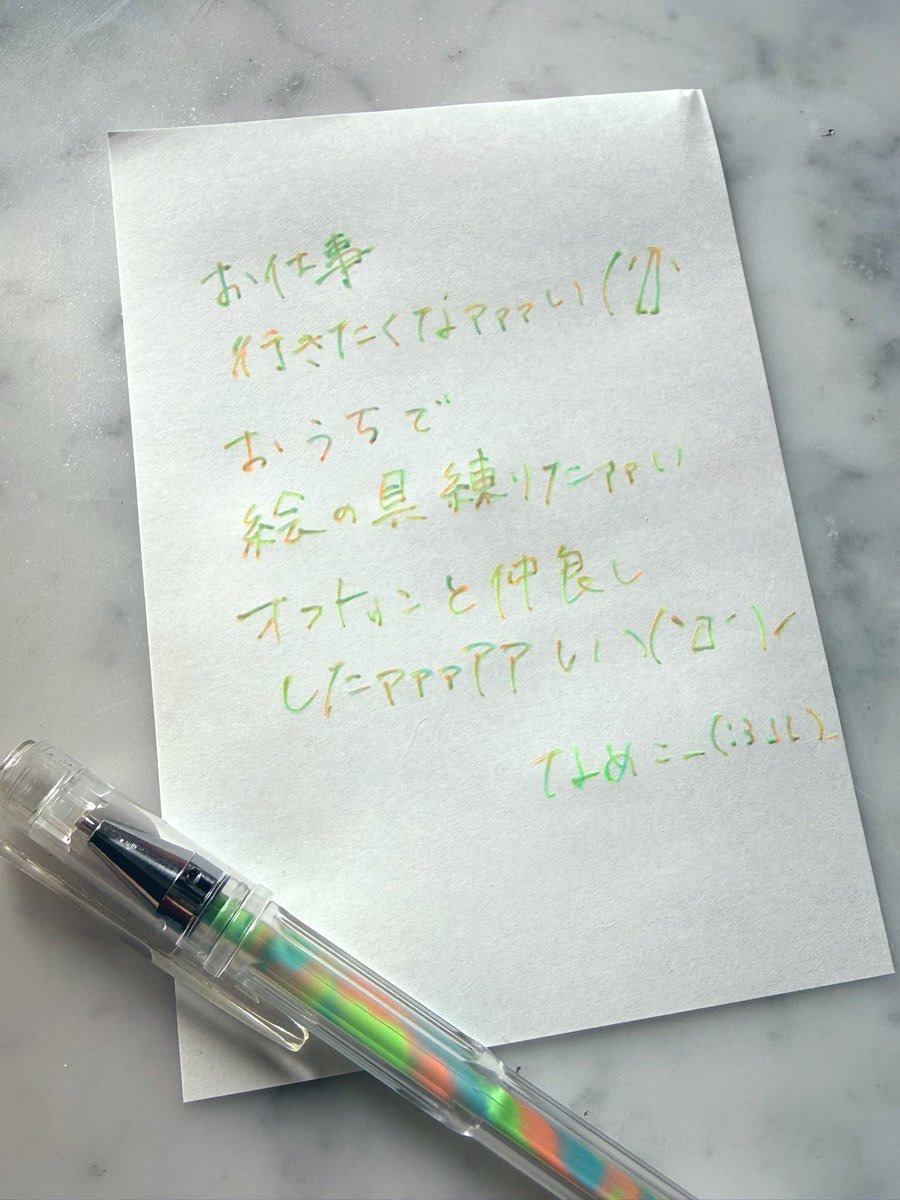 お仕事
行きたくなァァァい(´Д`
おうちで
絵の具練りたァァァい
オフトゥンと仲良し
したァァァアアいヽ(`Д´)ノ
なめこ_(:3」∠)_